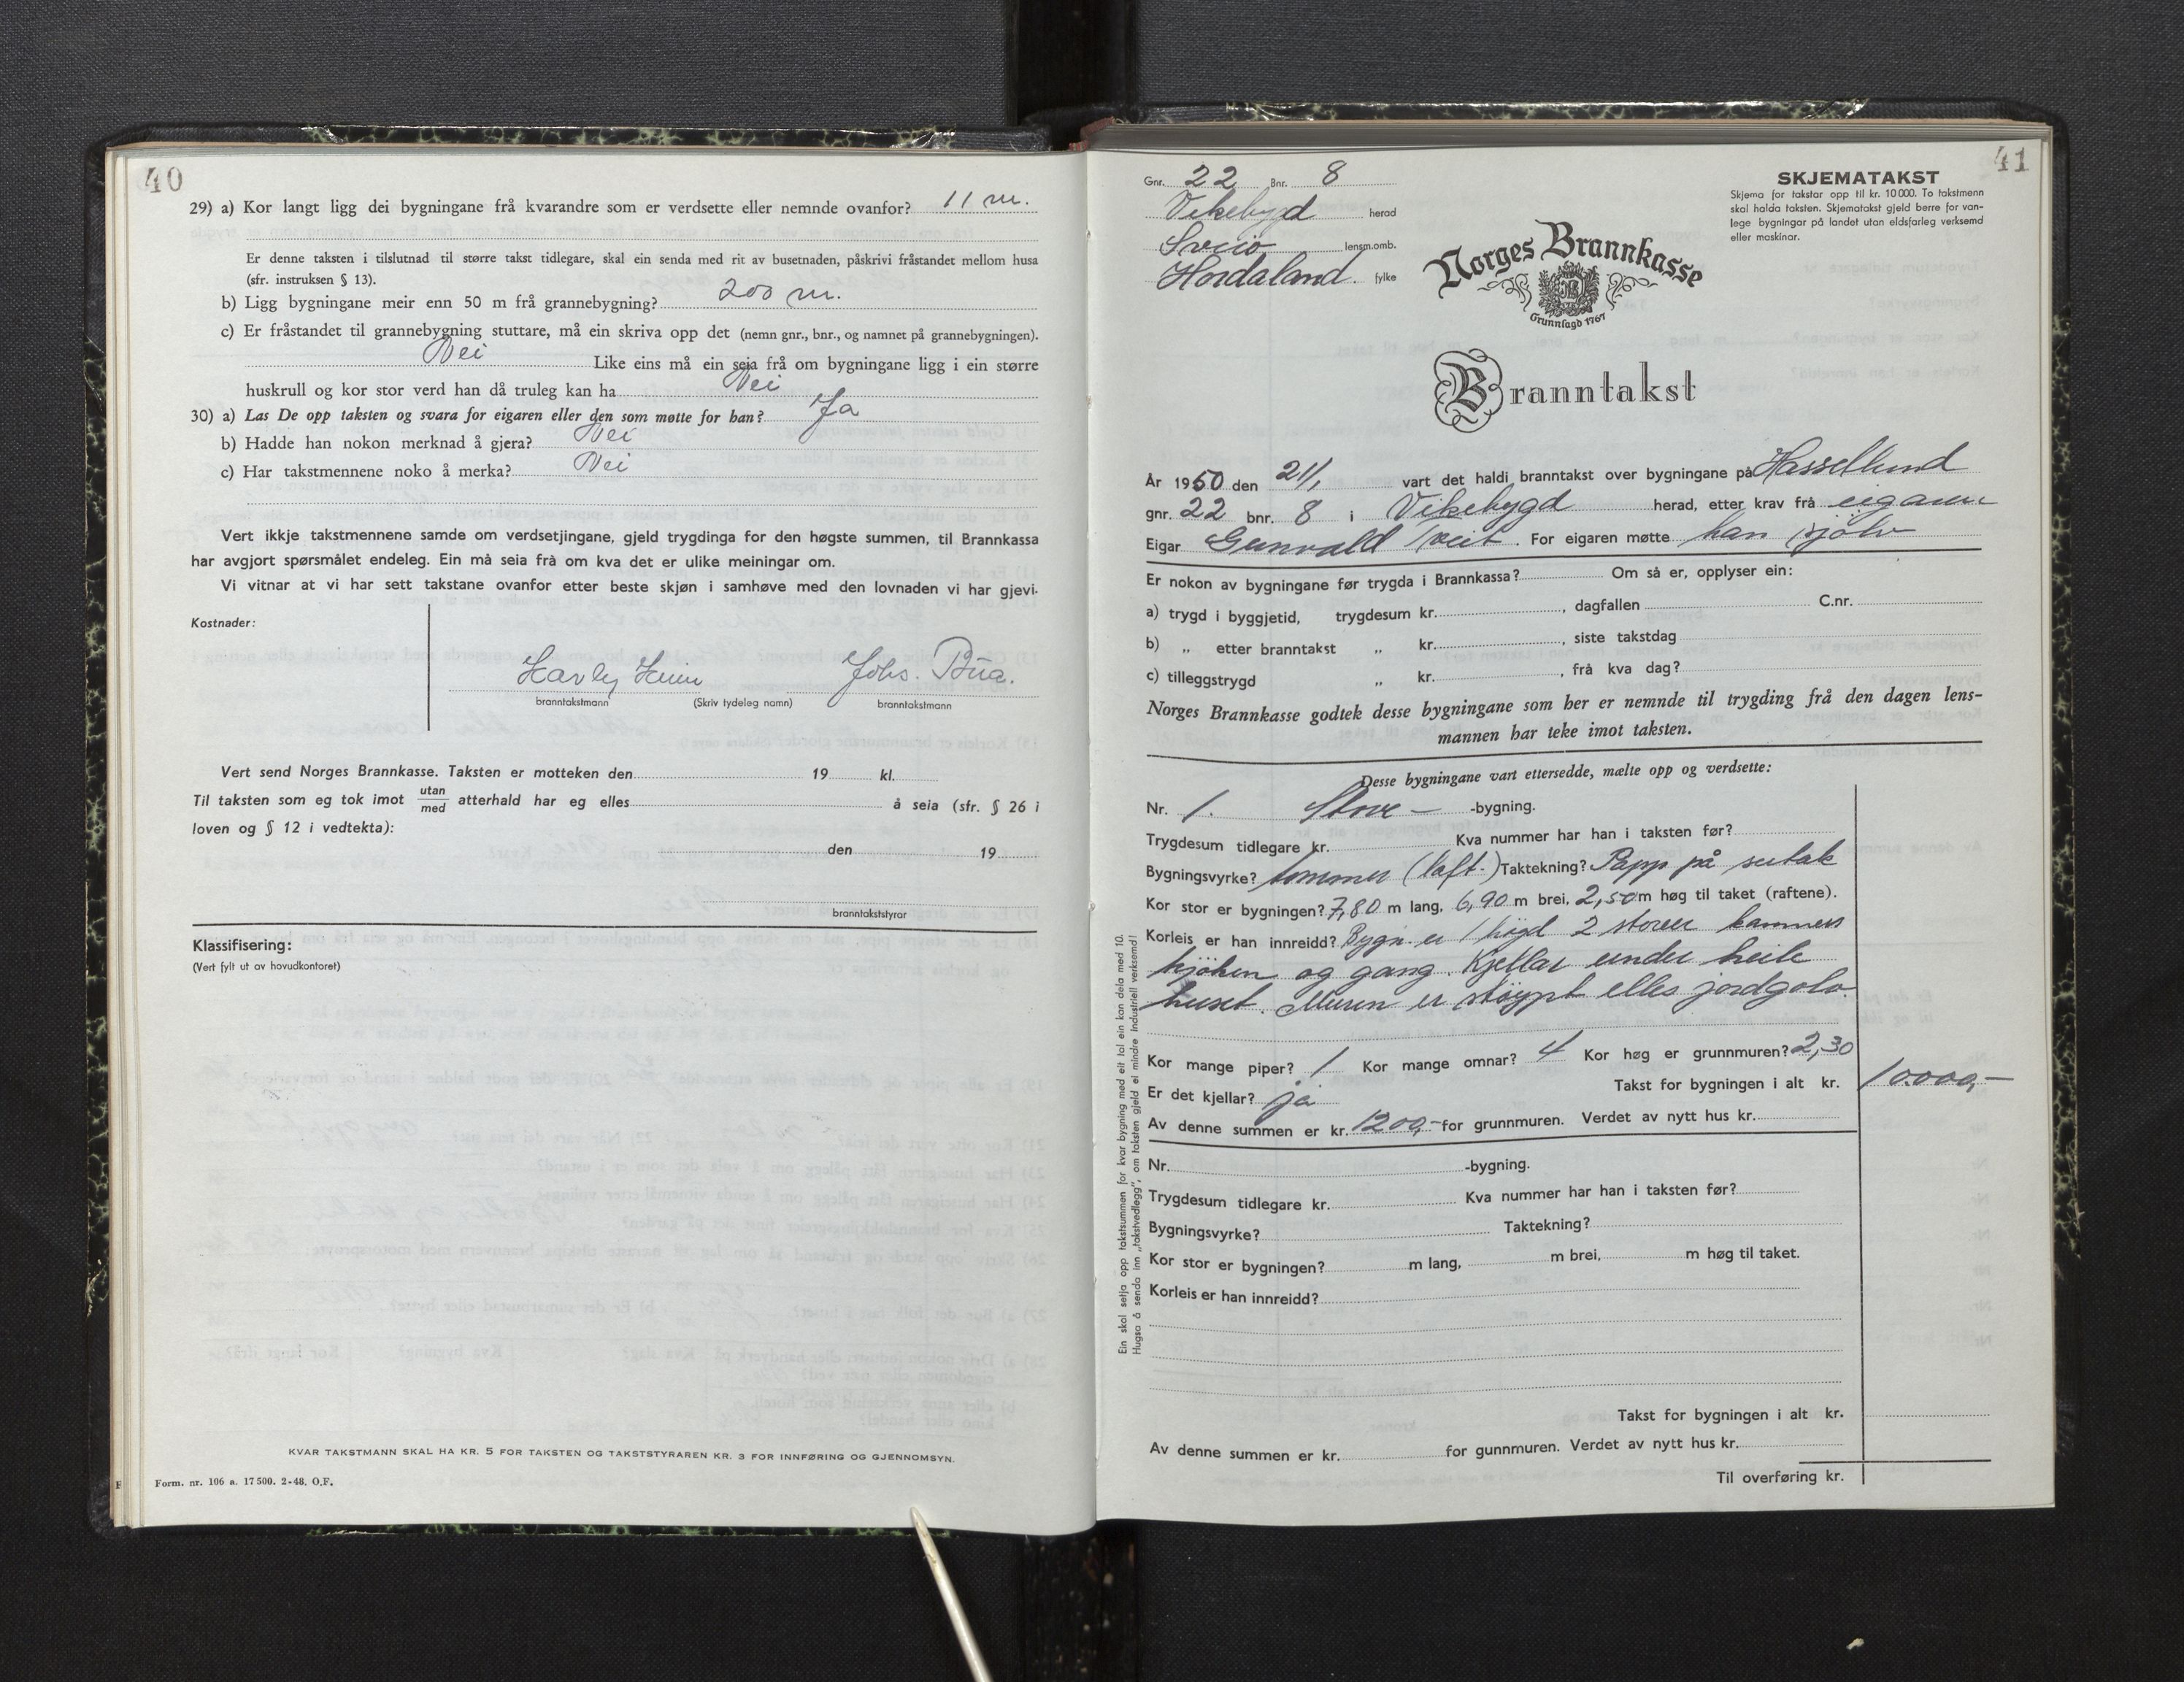 40
29) a) Kor langt ligg dei bygningane frå kvarandre som er verdsette eller nemnde ovanfor? 11 m.
Er denne taksten i tilslutnad til større takst tidlegare, skal ein senda med rit av busetnaden, påskrivi fråstandet mellom husa
(sfr. instruksen § 13).
b) Ligg bygningane meir enn 50 m frå grannebygning? 200 m.
c) Er fråstandet til grannebygning stuttare, må ein skriva opp det (nemn gnr., bnr., og namnet på grannebygningen).
Nei Like eins må ein seia frå om bygningane ligg i ein større
huskrull og kor stor verd han då truleg kan ha Nei
30) a) Las De opp taksten og svara for eigaren eller den som møtte for han? Ja
b) Hadde han nokon merknad å gjera? Nei
c) Har takstmennene noko å merka? Nei
Vert ikkje takstmennene samde om verdsetjingane, gjeld trygdinga for den høgste summen, til Brannkassa
har avgjort spørsmålet endeleg. Ein må seia frå om kva det er ulike meiningar om.
Vi vitnar at vi har sett takstane ovanfor etter beste skjøn i samhøve med den lovnaden vi har gjevi.
Kostnader:
Johs. Bua.
branntakstmann (Skriv tydeleg namn) branntakstmann
Vert send Norges Brannkasse. Taksten er motteken den 19 kl.
Til taksten som eg tok imot utan/med atterhald har eg elles å seia (sfr. § 26 i
loven og § 12 i vedtekta):
den 19
branntakststyrar
Klassifisering:
(Vert fylt ut av hovudkontoret)
KVAR TAKSTMANN SKAL HA KR. 5 FOR TAKSTEN OG TAKSTSTYRAREN KR. 3 FOR INNFØRING OG GJENNOMSYN.
Form. nr. 106 a. 17 500. 2-48. O.F.
41
Gnr. 22 Bnr. 8
Vikebygd herad
Sveio lensm.omb.
Hordaland. fylke
SKJEMATAKST
Skjema for takstar opp til kr. 10 000. To takstmenn
skal halda taksten. Skjematakst gjeld berre for van-
lege bygningar på landet utan eldsfarleg verksemd
eller maskinar.
Norges Brannkasse
Grunnlagd 1767
Branntakst
År 1950 den 21/1 vart det haldi branntakst over bygningane på Hassellund
gnr. 22 bnr. 8 i Vikebygd herad, etter krav frå eigaren
Eigar Gunvald Tveit. For eigaren møtte han sjölv
Er nokon av bygningane før trygda i Brannkassa? Om så er, opplyser ein:
a) trygd i byggjetid, trygdesum kr. , dagfallen C.nr.
b) „ etter branntakst „ kr. , siste takstdag
c) tilleggstrygd „ kr. , frå kva dag?
Norges Brannkasse godtek desse bygningane som her er nemnde til trygding frå den dagen lens-
mannen har teke imot taksten.
Desse bygningane vart ettersedde, mælte opp og verdsette:
Nr. 1. Stove- -bygning.
Trygdesum tidlegare kr. Kva nummer har han i taksten før?
Bygningsvyrke? tømmer (laft.) Taktekning? Papp på sutak
Kor stor er bygningen? 7,80 m lang, 6,90 m brei, 2,50 m høg til taket (raftene).
Korleis er han innreidd? Bygn. er 1 högd 2 stover kammers
kjöken og gang. Kjellar under heile
huset. Muren er stöypt elles jordgolv.
Kor mange piper? 1 Kor mange omnar? 4 Kor høg er grunnmuren? 2,30
Er det kjellar? ja Takst for bygningen i alt kr. 10.000,-
Av denne summen er kr. 1200,- for grunnmuren. Verdet av nytt hus kr.
Nr. -bygning.
Trygdesum tidlegare kr. Kva nummer har han i taksten før?
Bygningsvyrke? Taktekning?
Kor stor er bygningen? m lang, m brei, m høg til taket.
Korleis er han innreidd?
Takst for bygningen i alt kr.
Av denne summen er kr. for gunnmuren. Verdet av nytt hus kr.
Til overføring kr.
Ein skal setja opp takstsummen for kvar bygning med eit tal ein kan dela med 10.
Hugsa å senda inn „takstvedlegg", om taksten gjeld ei mindre industriell verksemd!